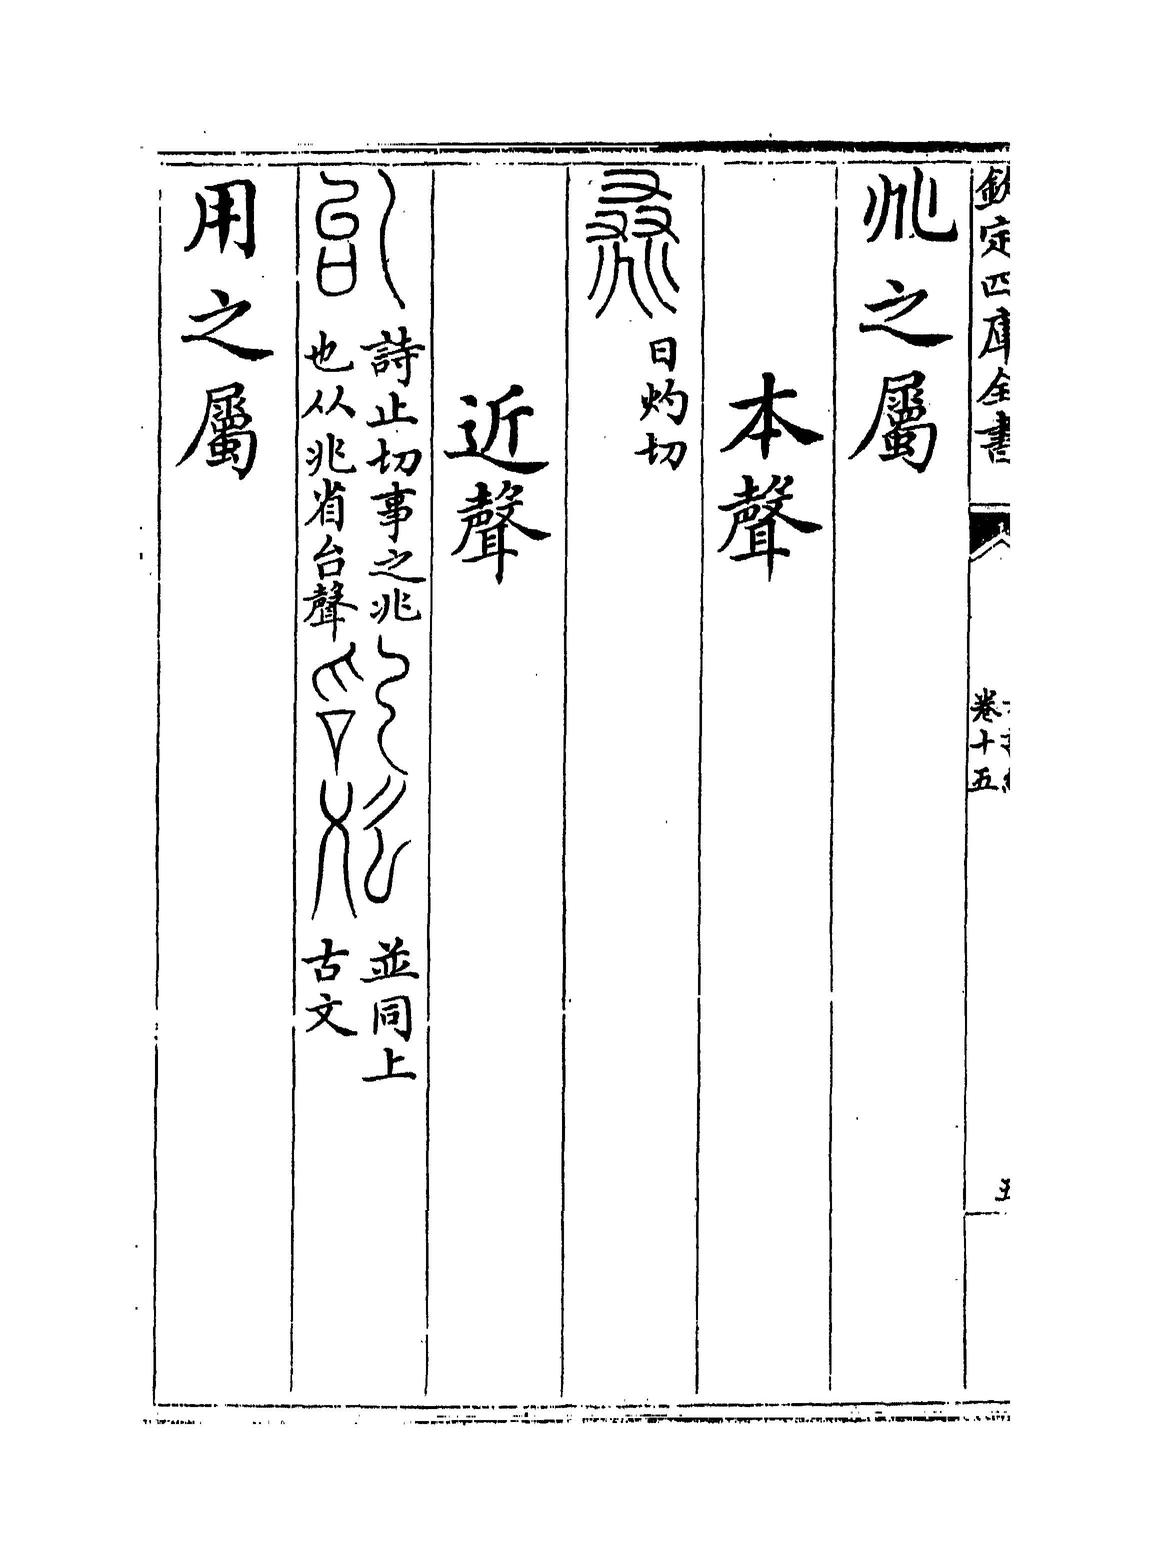 欽定四庫全書
卷十五
兆之屬
本聲
日灼切
近聲
詩止切事之兆
也从兆省台聲
並同上
古文
用之屬